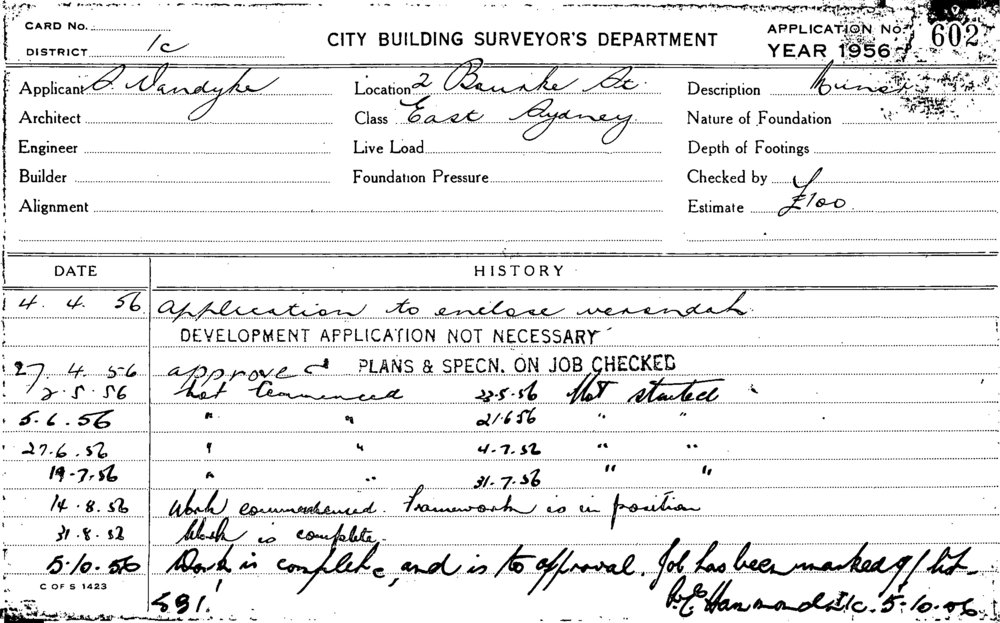 CARD No.
DISTRICT 1c
CITY BUILDING SURVEYOR'S DEPARTMENT
APPLICATION No. 602
YEAR 1956
Applicant A. Vandyke Location 2 Bourke St. Description
Architect Class East Sydney Nature of Foundation
Engineer Live Load Depth of Footings
Builder Foundation Pressure Checked by
Alignment Estimate £100
DATE HISTORY
4. 4. 56 application to enclose verandah.
DEVELOPMENT APPLICATION NOT NECESSARY
27. 4. 56 approved PLANS & SPECN. ON JOB CHECKED
2-5-56 Not Commenced 22-5-56 Not started
5.6.56 " " 21.6.56 " "
27.6.56 " " 4-7.56 " "
19-7-56 " " 31.7.56 " "
14.8.56 Work commenced. Framework is in position
31.8.56 Work is complete.
5-10-56 Work is complete, and is to approval. Job has been marked off list
C OF S 1423
Hammond 1c. 5-10-56